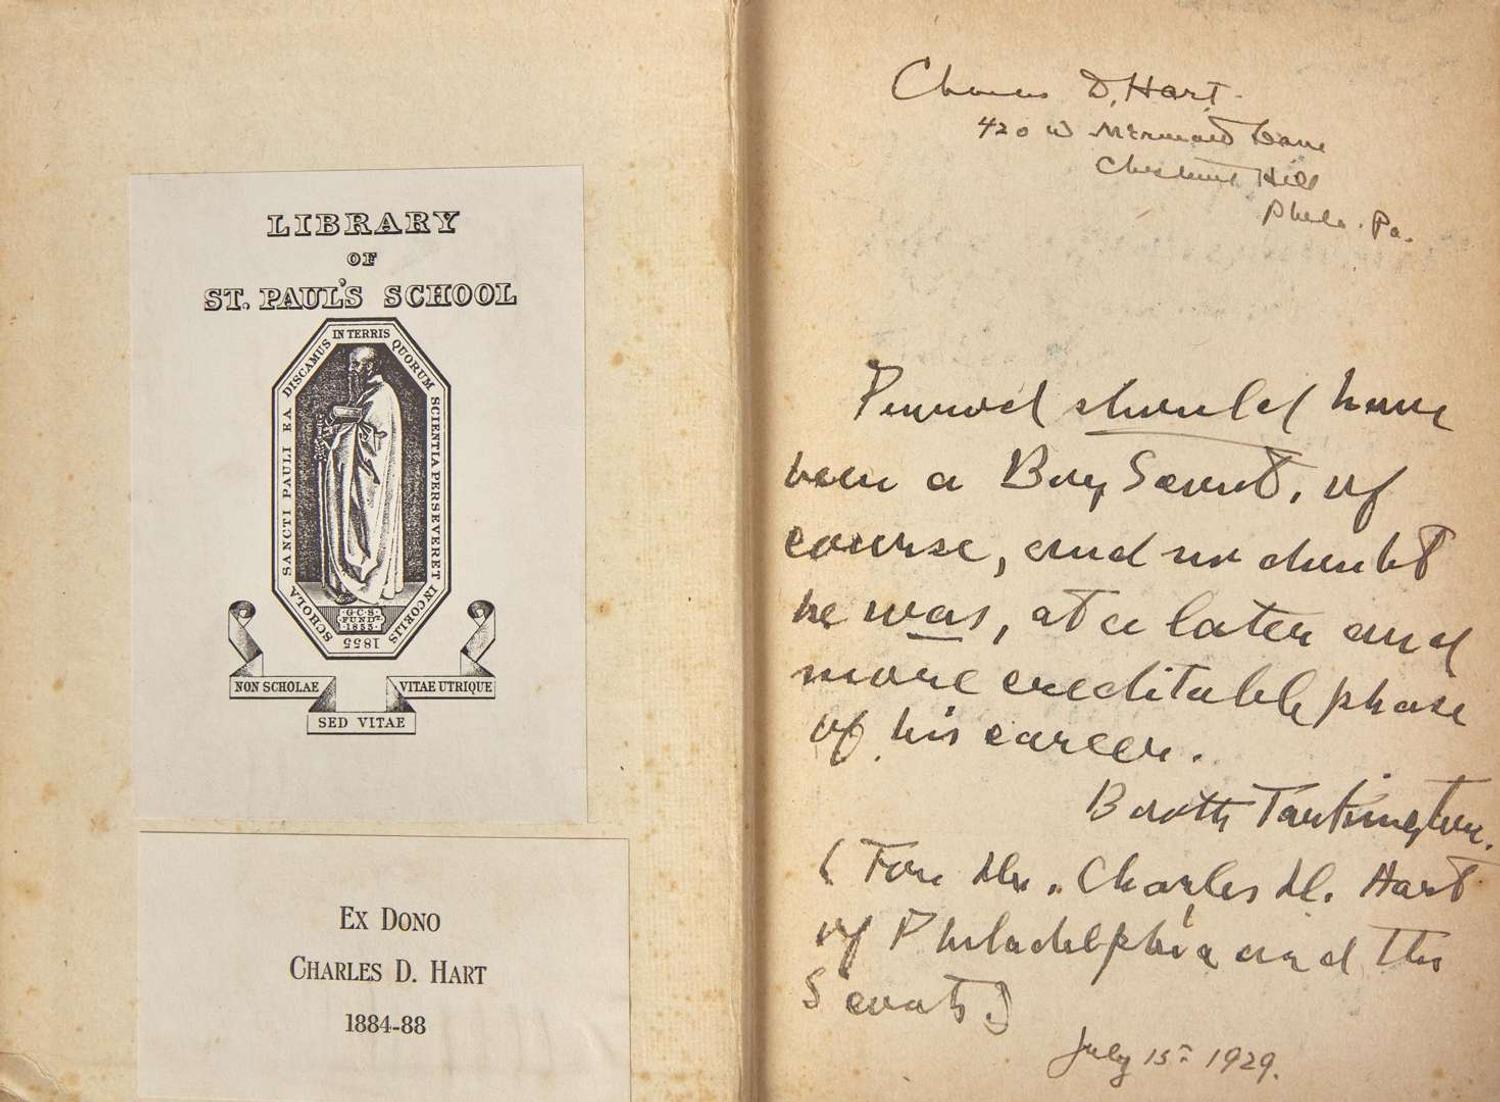 LIBRARY
OF
ST. PAUL'S SCHOOL
SCHOLA SANCTI PAULI EA DISCAMUS IN TERRIS QUORUM SCIENTIA PERSEVERET IN COELIS
1855
G.C.S.
FUNDR
1855
NON SCHOLAE
VITAE UTRIQUE
SED VITAE
EX DONO
CHARLES D. HART
1884-88
Charles D. Hart
420 W Mermaid Lane
Chestnut Hill
Phila. Pa.
Penrod should have
been a Boy Scout, of
course, and no doubt
he was, at a later and
more creditable phase
of his career.
Booth Tarkington.
(For Mr. Charles D. Hart
of Philadelphia and the
Scouts)
July 15 1929.